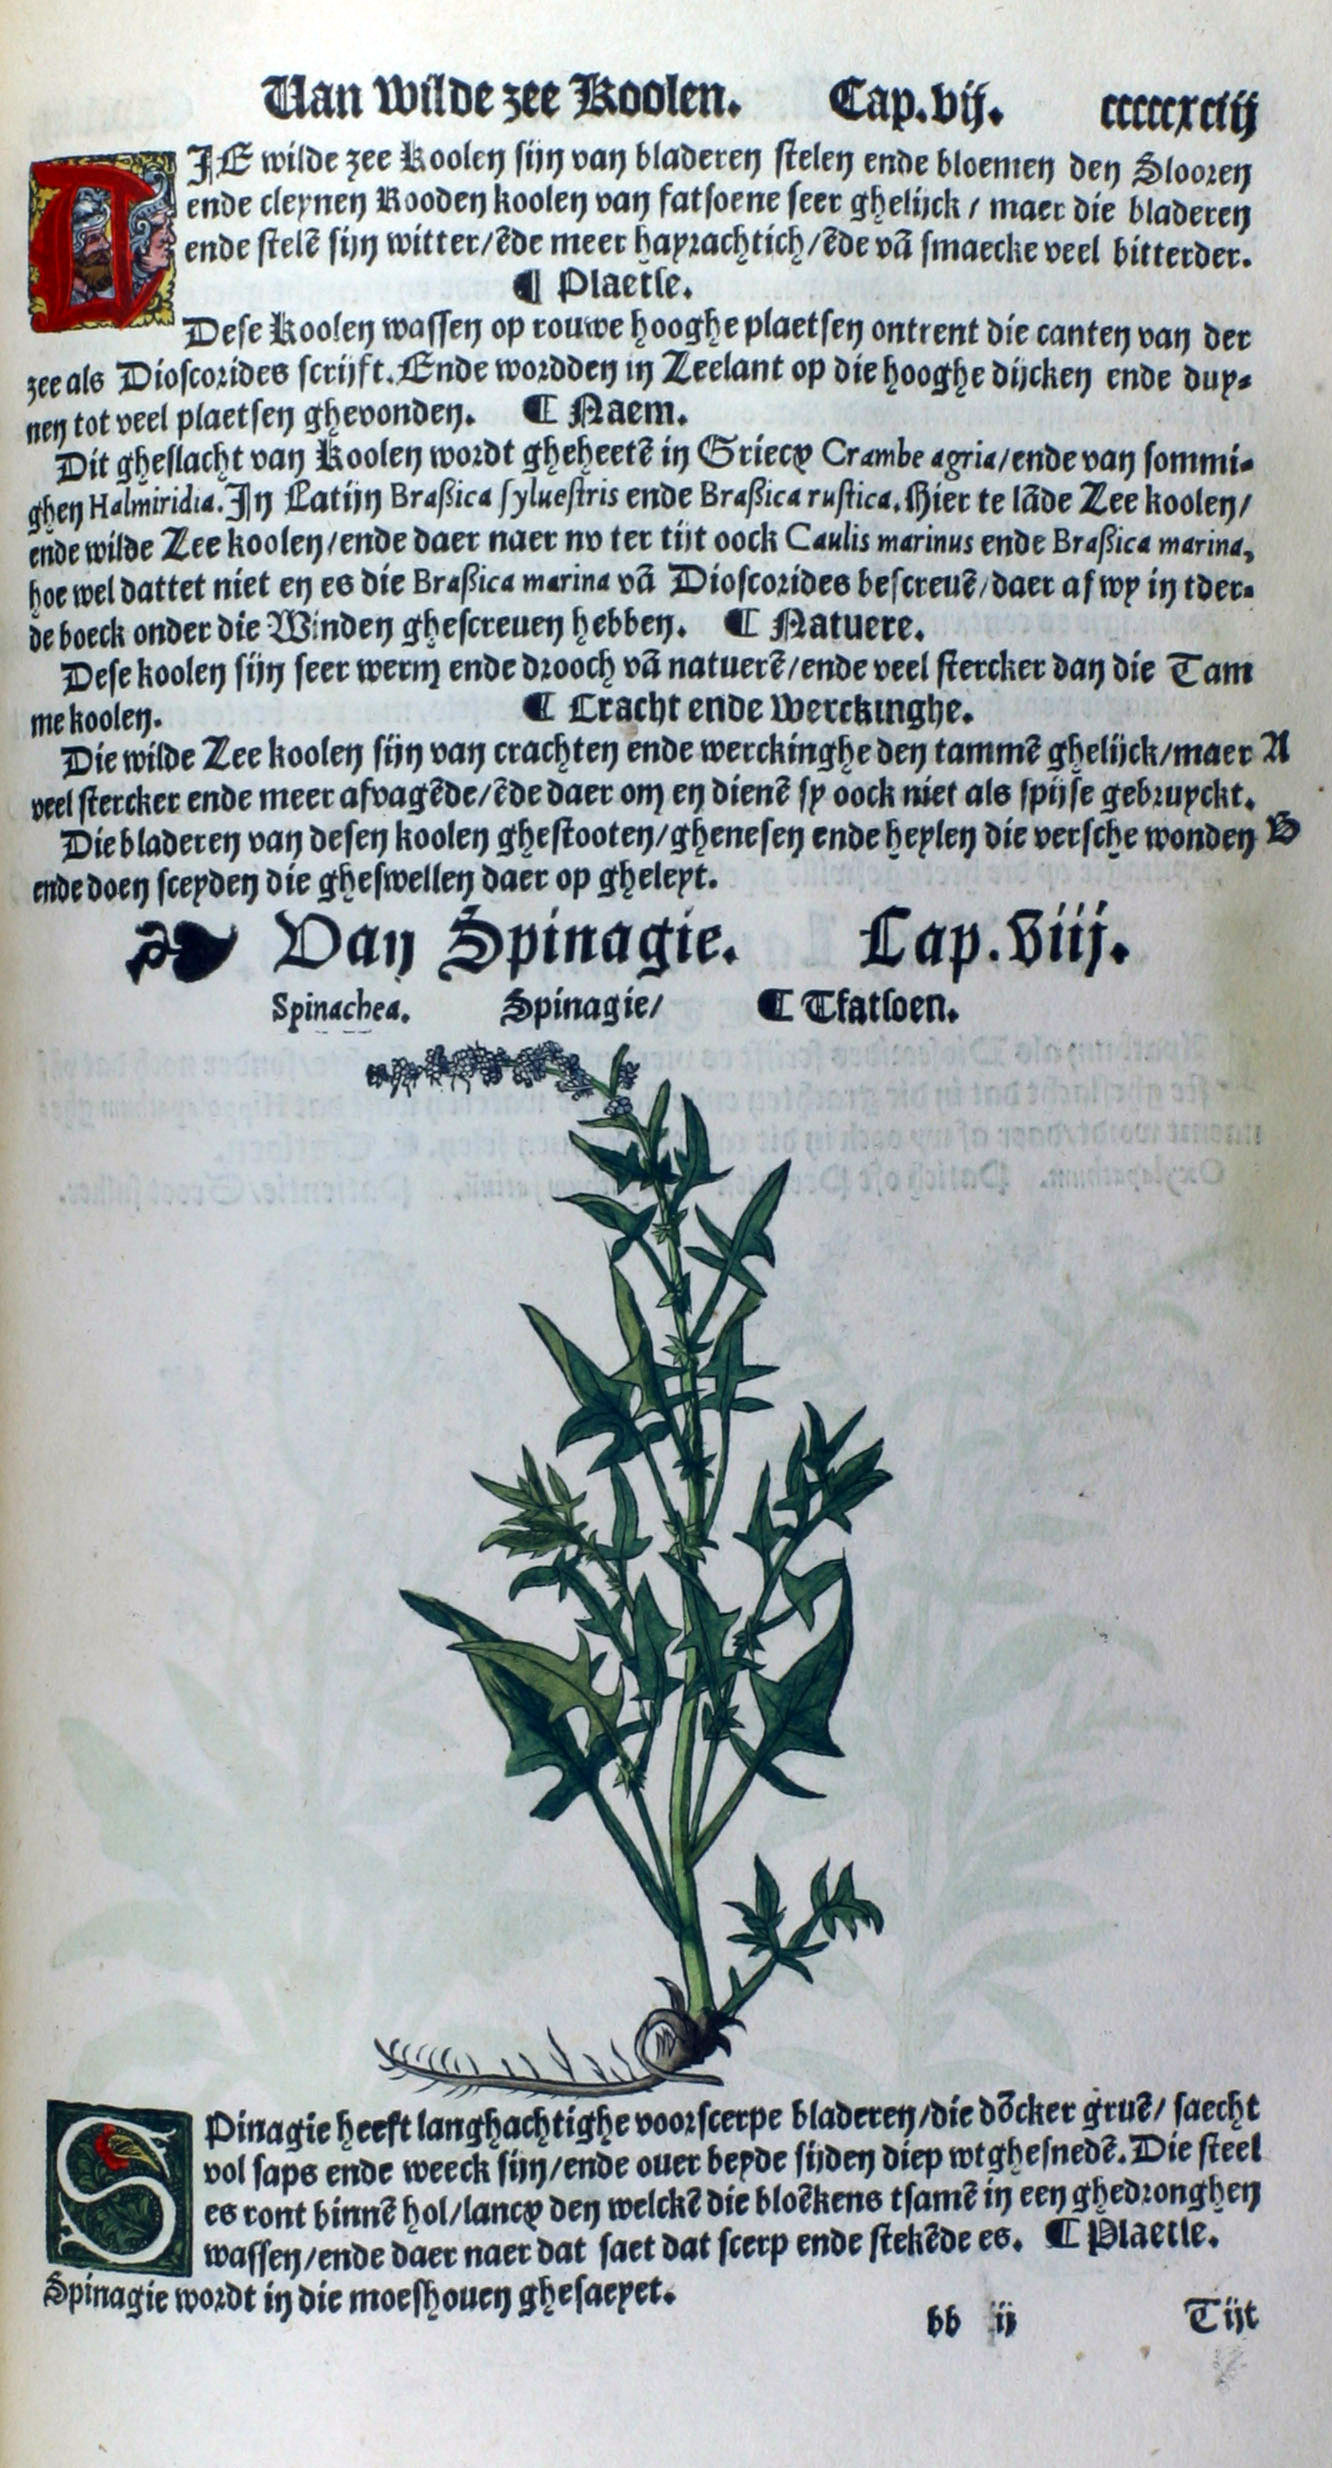 Van Wilde zee Koolen. Cap.vij. cccccxciij
DIE wilde zee Koolen sijn van bladeren stelen ende bloemen den Slooren
ende cleynen Rooden koolen van fatsoene seer ghelijck / maer die bladeren
ende stelē sijn witter/ēde meer hayrachtich/ēde vā smaecke veel bitterder.
¶ Plaetse.
Dese Koolen wassen op rouwe hooghe plaetsen ontrent die canten van der
zee als Dioscorides scrijft. Ende wordden in Zeelant op die hooghe dijcken ende duy-
nen tot veel plaetsen ghevonden. ¶ Naem.
Dit gheslacht van Koolen wordt gheheetē in Griecx Crambe agria/ende van sommi-
ghen Halmiridia. In Latijn Braßica syluestris ende Braßica rustica. Hier te lāde Zee koolen/
ende wilde Zee koolen/ende daer naer nv ter tijt oock Caulis marinus ende Braßica marina,
hoe wel dattet niet en es die Braßica marina vā Dioscorides bescreuē/daer af wy in tder-
de boeck onder die Winden ghescreuen hebben. ¶ Natuere.
Dese koolen sijn seer werm ende drooch vā natuerē/ende veel stercker dan die Tam
me koolen. ¶ Cracht ende Werckinghe.
Die wilde Zee koolen sijn van crachten ende werckinghe den tammē ghelijck/maer A
veel stercker ende meer afvagēde/ēde daer om en dienē sy oock niet als spijse gebruyckt.
Die bladeren van desen koolen ghestooten/ghenesen ende heylen die versche wonden B
ende doen sceyden die gheswellen daer op gheleyt.
❧ Van Spinagie. Cap.viij.
Spinachea. Spinagie/ ¶ Tfatsoen.
SPinagie heeft langhachtighe voorscerpe bladeren/die dōcker gruē/ saecht
vol saps ende weeck sijn/ende ouer beyde sijden diep wtghesnedē. Die steel
es ront binnē hol/lancx den welckē die bloēkens tsamē in een ghedronghen
wassen/ende daer naer dat saet dat scerp ende stekēde es. ¶ Plaetse.
Spinagie wordt in die moeshouen ghesaeyet.
bb ij Tijt